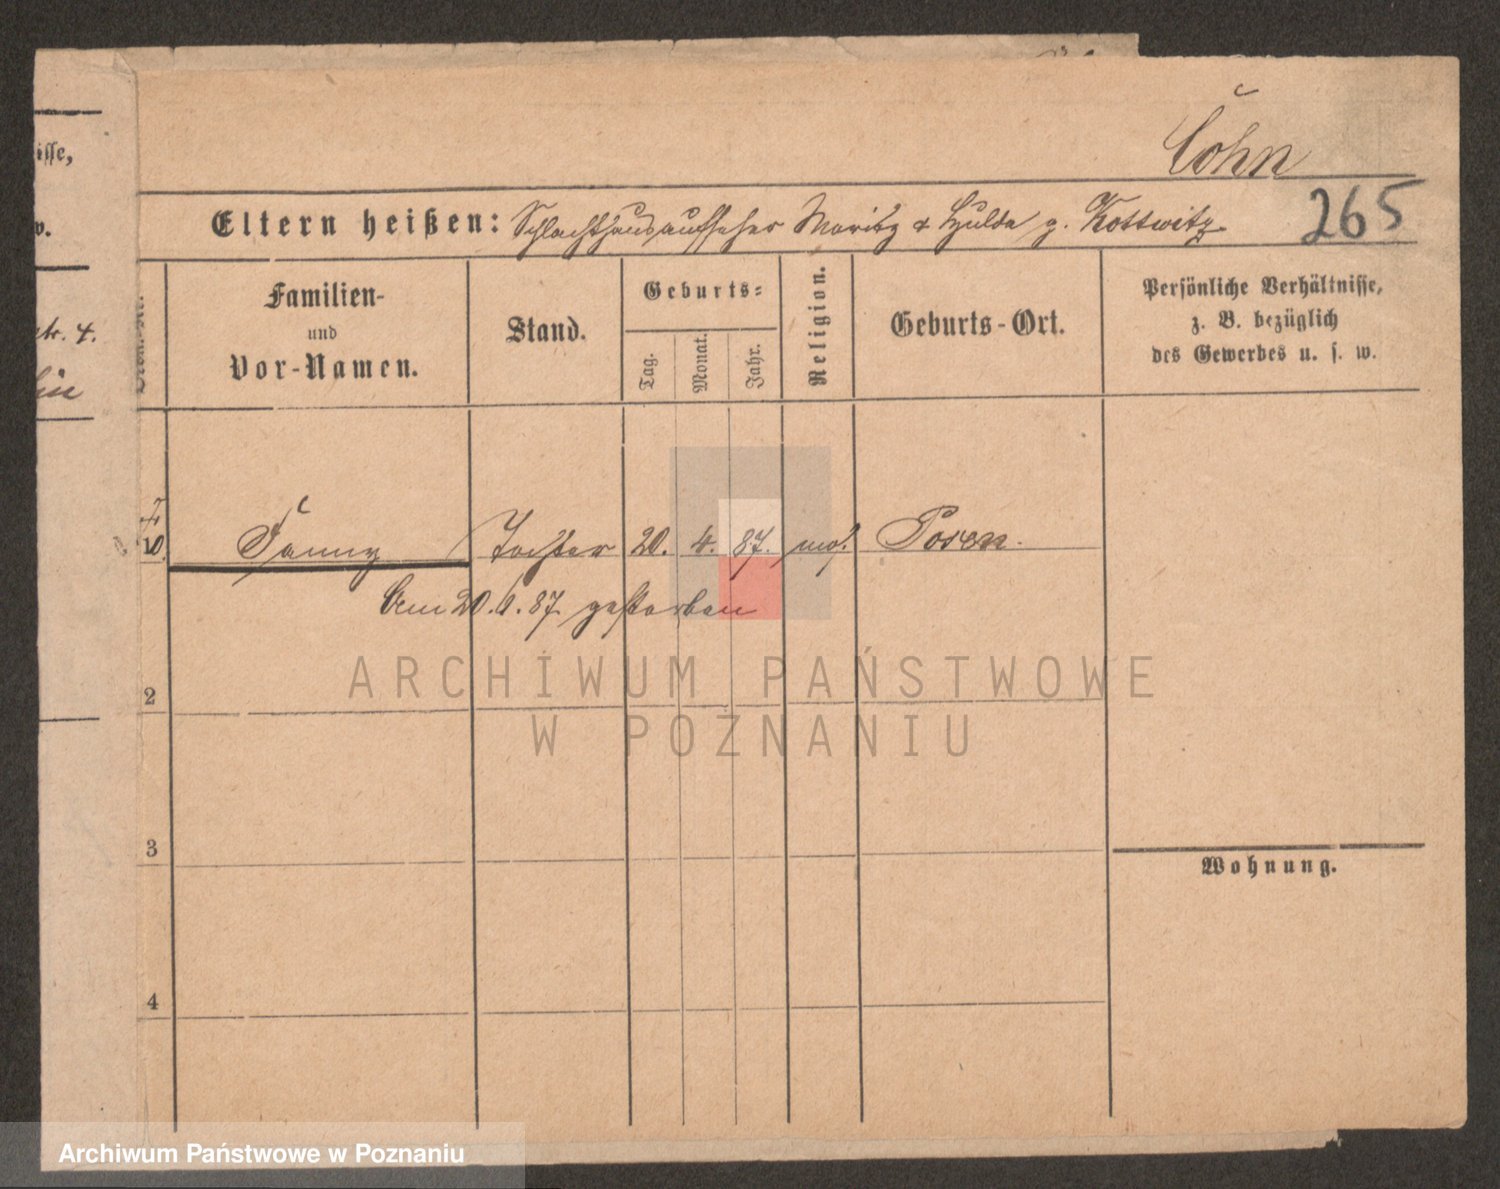 isse,
w.
str. 4.
Cohn
Eltern heißen: Schlachthausaufseher Moritz & Hulda g. Kottwitz
265
Familien- und Vor-Namen.
Stand.
Geburts=
Tag.
Monat.
Jahr.
Religion.
Geburts-Ort.
Persönliche Verhältnisse,
z. B. bezüglich
des Gewerbes u. s. w.
Fanny Tochter 20. 4. 87. mos. Posen.
Am 20. 6. 87. gestorben
2
3
4
Wohnung.
ARCHIWUM PAŃSTWOWE
W POZNANIU
Archiwum Państwowe w Poznaniu